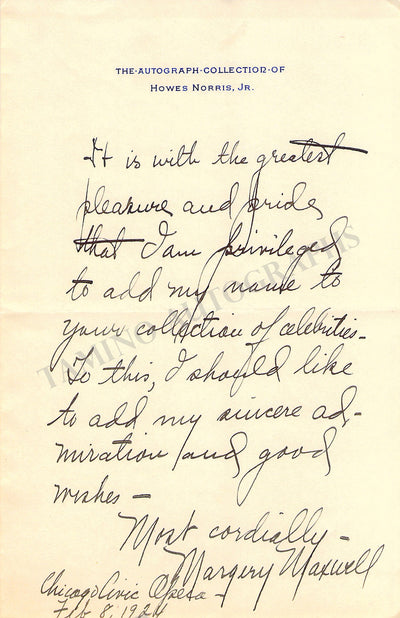 THE·AUTOGRAPH·COLLECTION·OF
HOWES NORRIS, JR.
It is with the greatest
pleasure and pride
that I am privileged
to add my name to
your collection of celebrities-
To this, I should like
to add my sincere ad-
miration and good
wishes -
Most cordially -
Margery Maxwell
Chicago Civic Opera -
Feb 8, 1924
TAMINO AUTOGRAPHS